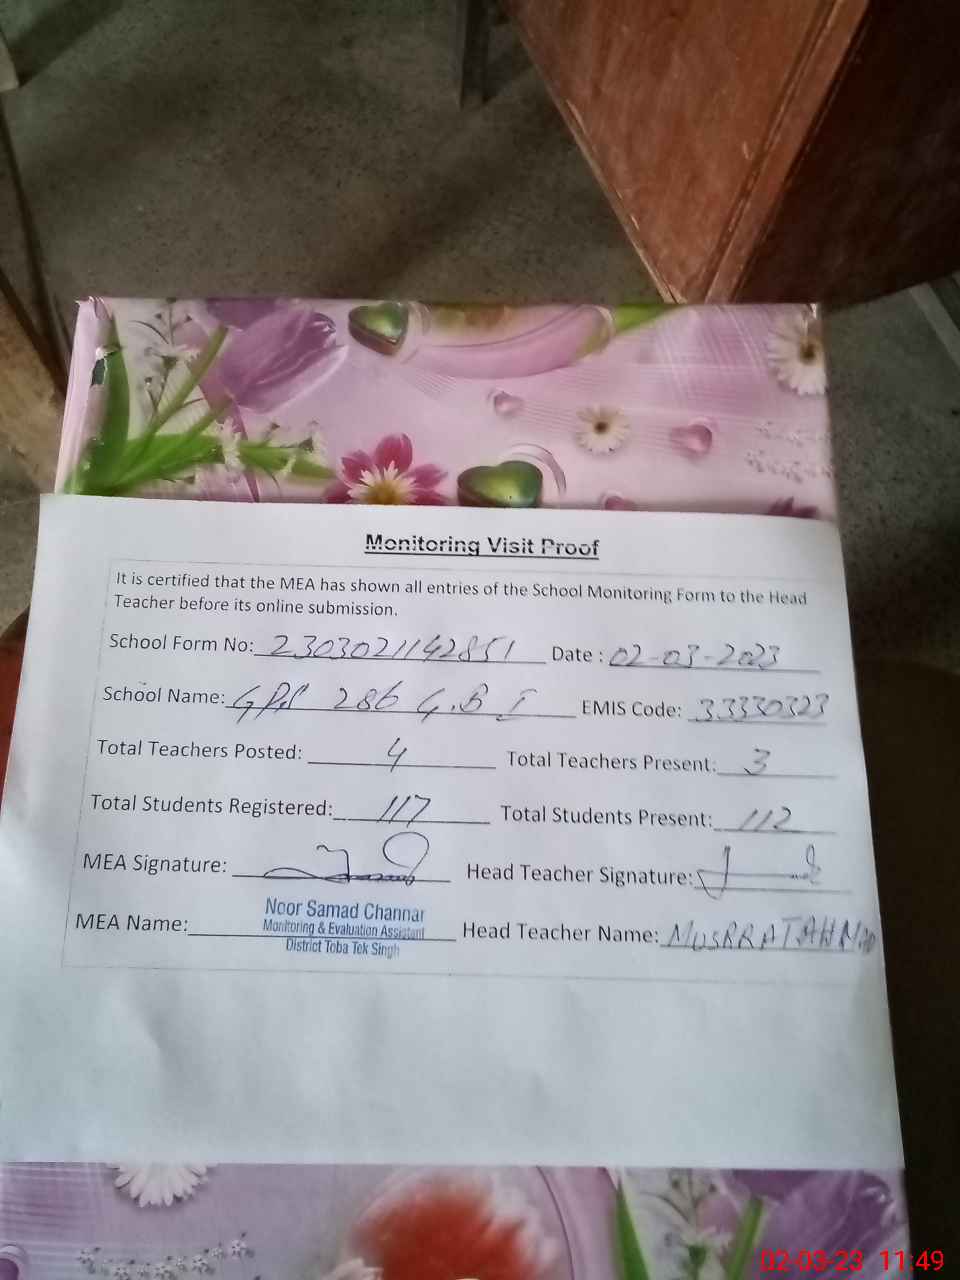 Monitoring Visit Proof
It is certified that the MEA has shown all entries of the School Monitoring Form to the Head
Teacher before its online submission.
School Form No: 2303021142851 Date : 02-03-2023
School Name: GPS 286 G.B I EMIS Code: 33330323
Total Teachers Posted: 4 Total Teachers Present: 3
Total Students Registered: 117 Total Students Present: 112
MEA Signature: Head Teacher Signature:
MEA Name: Noor Samad Channar
Monitoring & Evaluation Assistant
District Toba Tek Singh
Head Teacher Name: MUSRRAT AHMAD
02-03-23 11:49